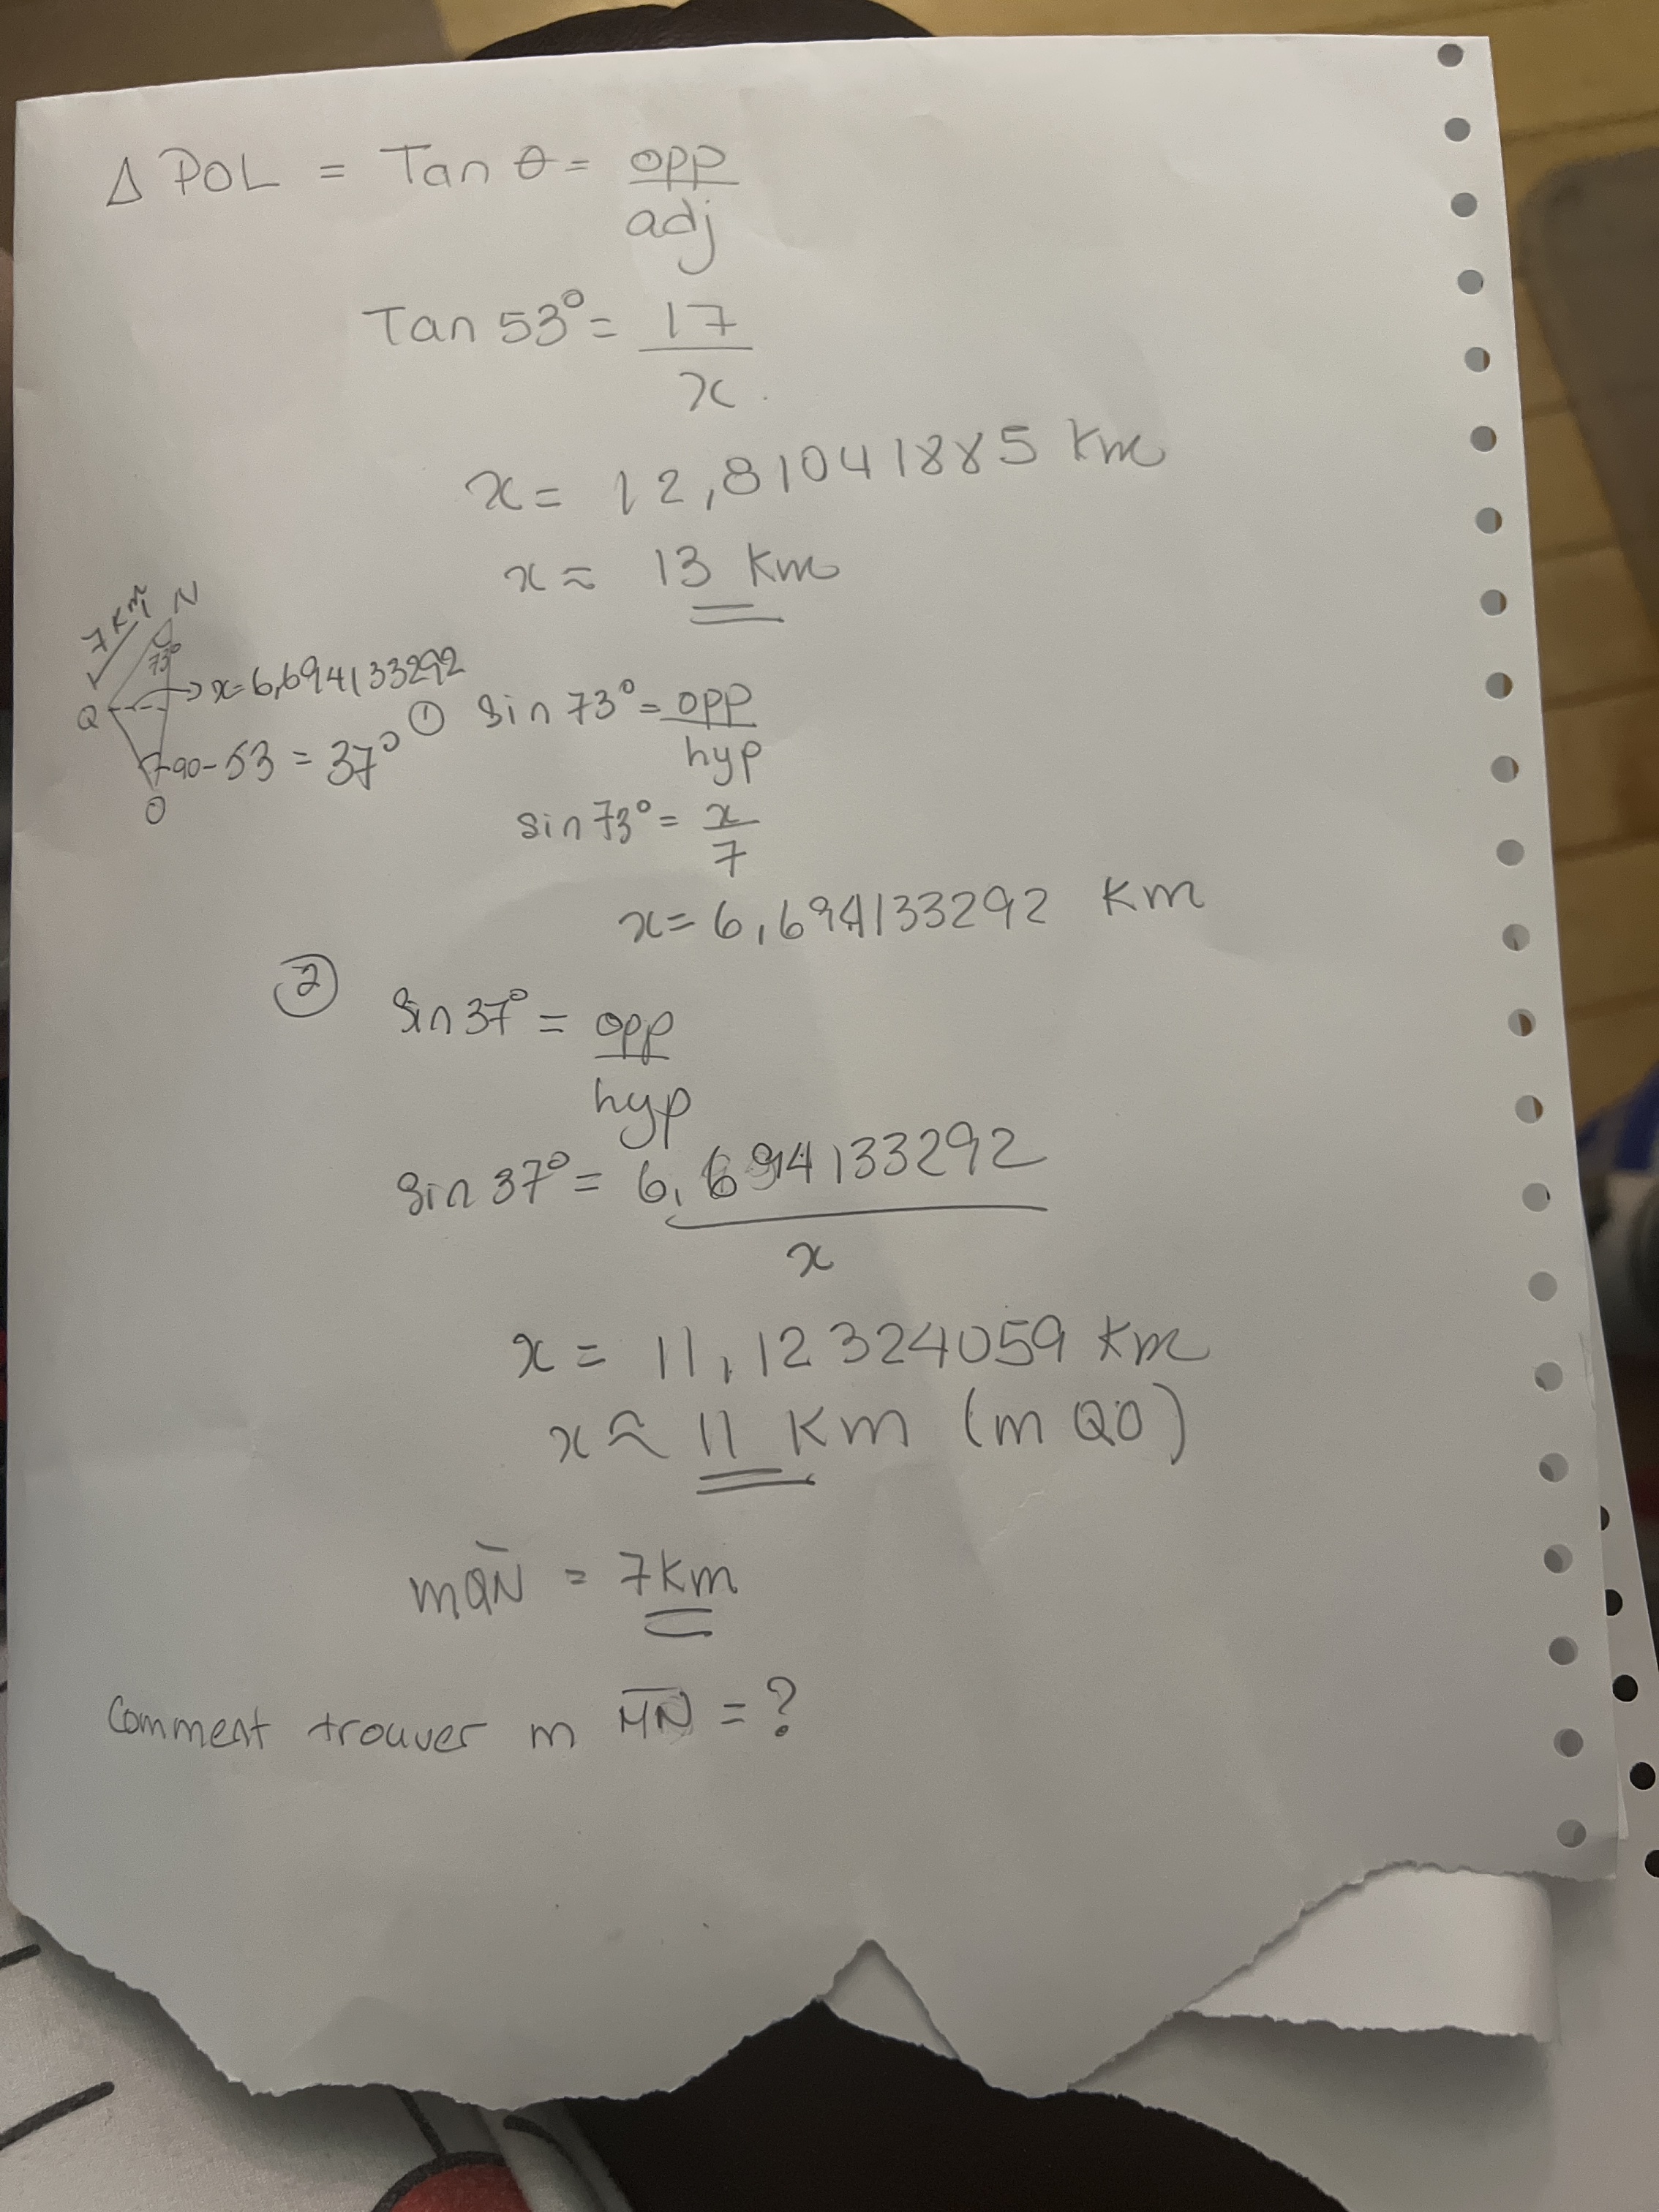 Δ POL = Tan θ = opp
adj
Tan 53° = 17
x
x = 12,81041885 Km
x ≈ 13 Km
7 Km N
73°
→ x=6,694133292
Q
90-53 = 37°
O
① Sin 73° = opp
hyp
sin 73° = x
7
x = 6,694133292 Km
② Sin 37° = opp
hyp
Sin 37° = 6,694133292
x
x = 11,12324059 Km
x ≈ 11 Km (m QO)
mQN = 7Km
Comment trouver m MN = ?